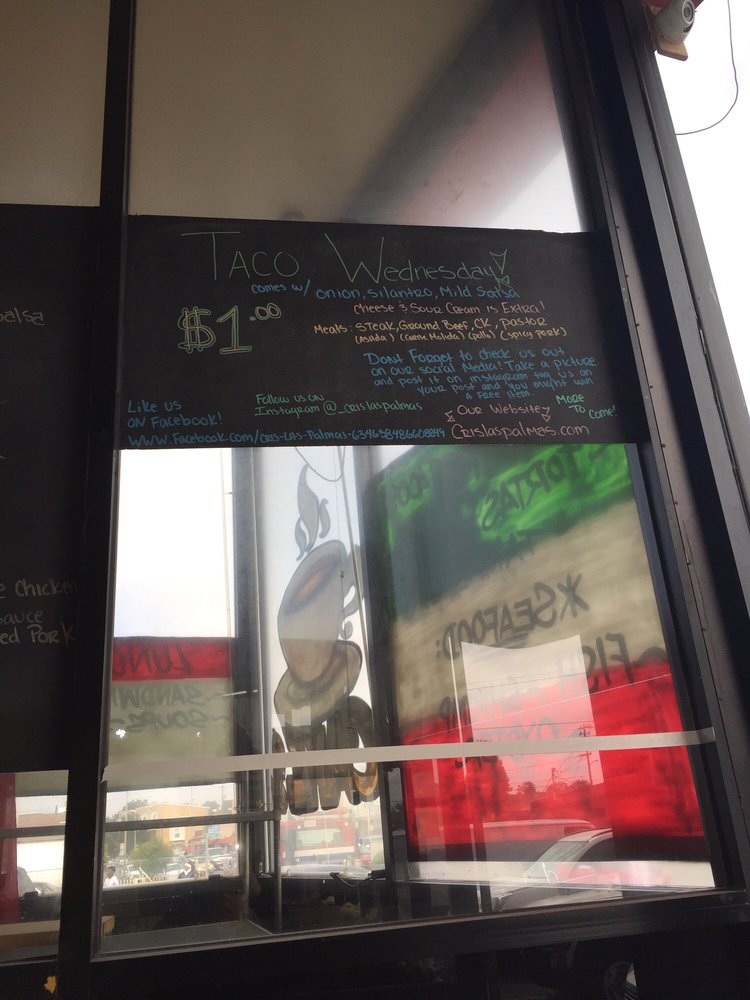 Taco Wednesday!
comes w/ onion, silantro, Mild Salsa
$1.00
Cheese & Sour Cream is Extra!
Meats: Steak, Ground Beef, CK, Pastor
(Asada) (Carne Molida) (pollo) (spicy pork)
Dont Forget to check us out
on our social Media! Take a picture
and post it on instagram tag us on
your post and you might win
a free item!
Like us
on Facebook!
www.Facebook.com/Cris-Las-Palmas-634638486608849
Follow us on
Instagram @_crislaspalmas
Our Website
Crislaspalmas.com
More
To Come!
salsa
Chicken
sauce
Pork
TORTAS
*SEAFOOD:
-FISH
SOUPS